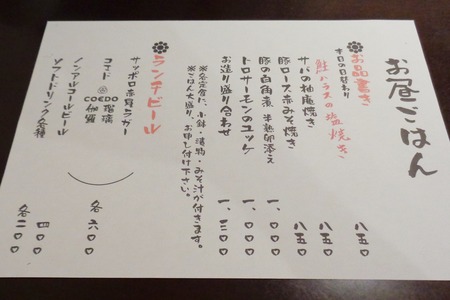 お昼ごはん
お品書き
本日の日替わり
鮭ハラスの塩焼き 八五〇
サバの柚庵焼き 八五〇
豚ロース赤みそ焼き 八五〇
豚の白角煮 半熟卵添え 一、〇〇〇
トロサーモンのユッケ 一、〇〇〇
お造り盛り合わせ 一、二〇〇
※各定食に、小鉢・漬物・みそ汁が付きます。
※ごはん大盛り、お申し付け下さい。
ランチビール
サッポロ赤星ラガー
コエド COEDO 瑠璃
COEDO 伽羅 各六〇〇
ノンアルコールビール 四〇〇
ソフトドリンク各種 各二〇〇